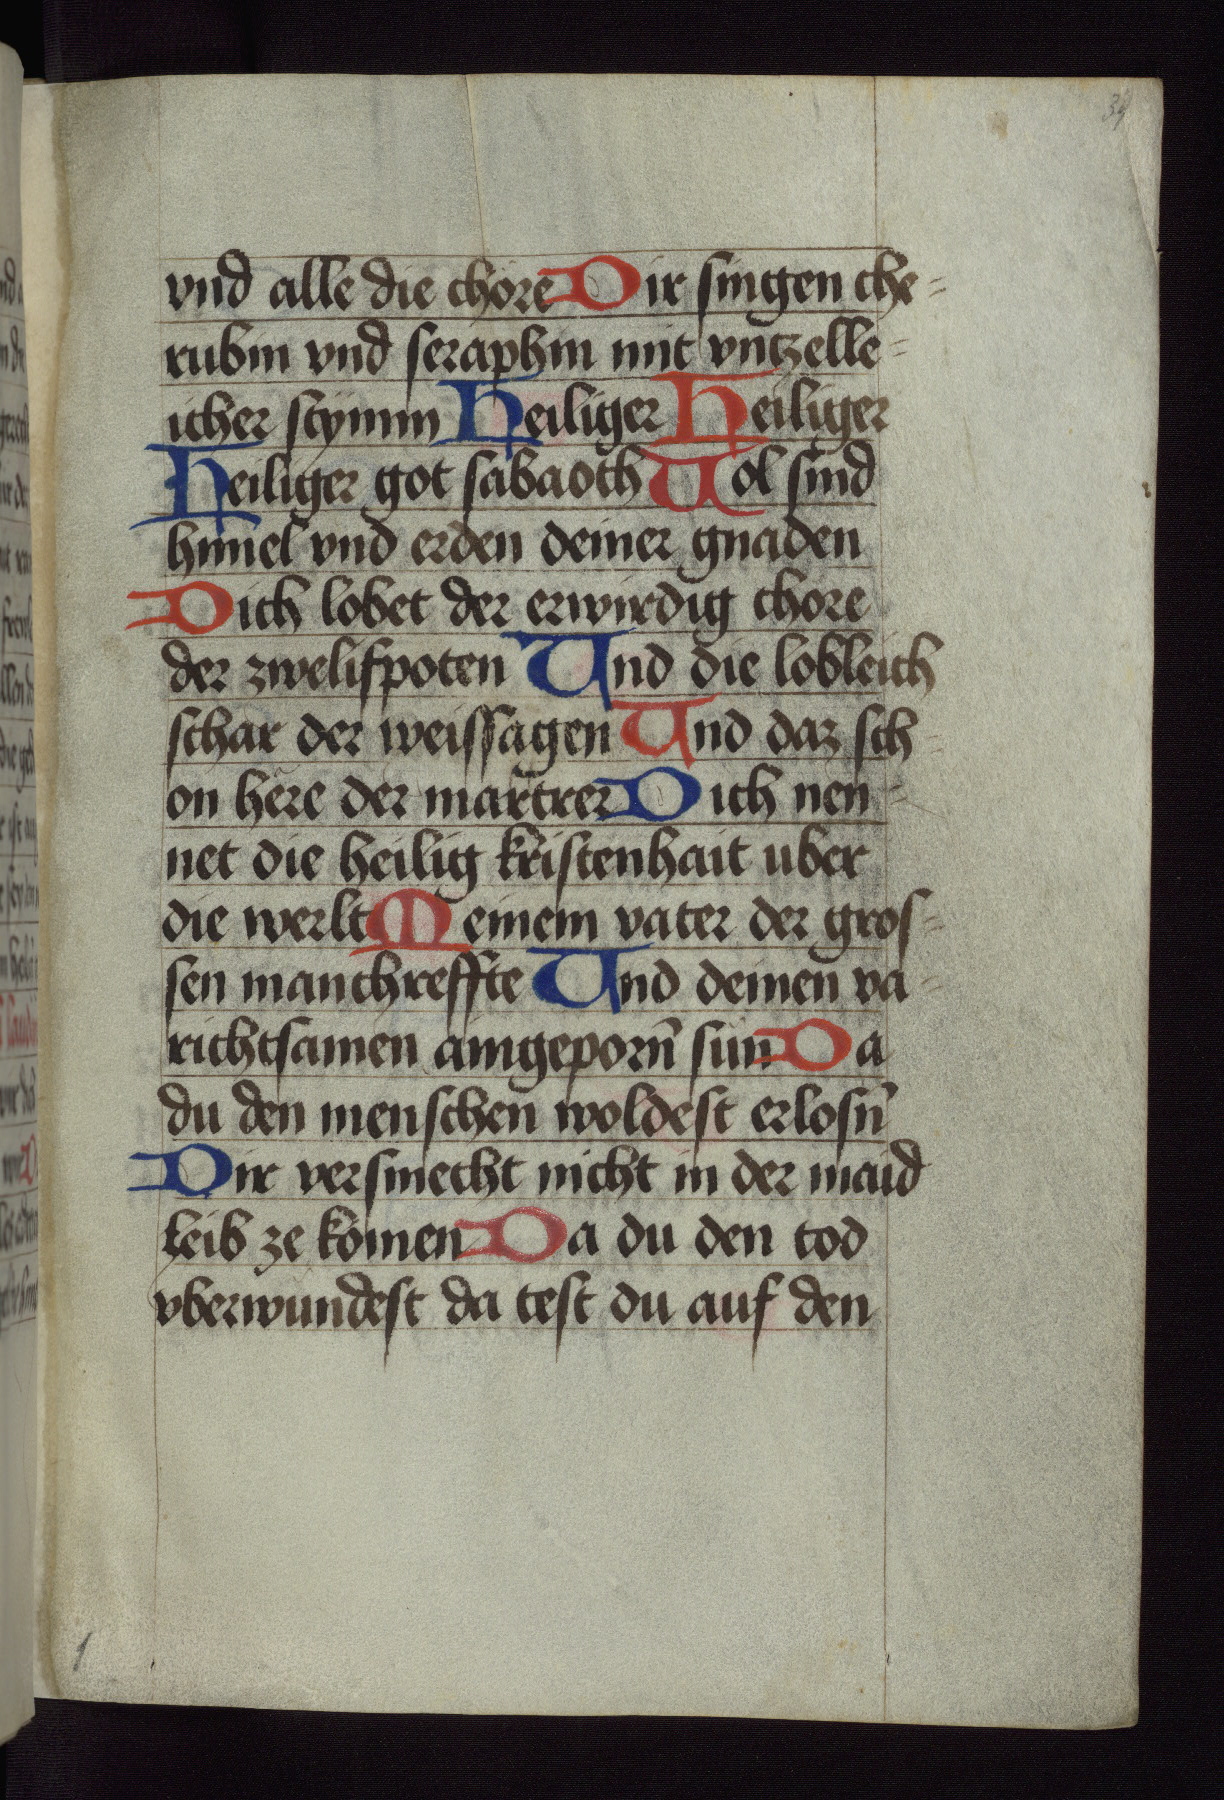 39
vnd alle die chore Dir singen che=
rubin vnd seraphin mit vntzelle=
icher stymm Heiliger Heiliger
Heiliger got sabaoth Uol sind
himel vnd erden deiner gnaden
Dich lobet der erwirdig chore
der zwelifpoten Und die lobleich
schar der weissagen Und daz sch=
on here der martrer Dich nen=
net die heilig kristenhait uber
die werlt Meinem vater der gros=
sen manchreffte Und deinen va=
richtsamen aingeporn̄ sun Da
du den menschen woldest erlosn̄
Dir versmecht nicht in der maid
leib ze komen Da du den tod
vberwundest da test du auf den
1